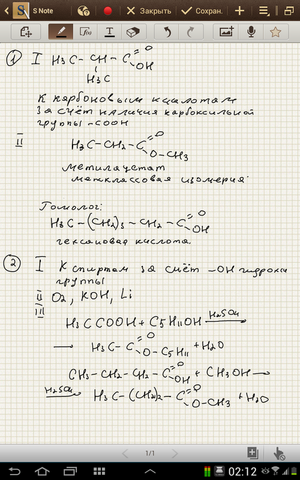 S Note
Закрыть
Сохран.
① I H₃C – CH – C =O OH
H₃C
К карбоновым кислотам
за счёт наличия карбоксильной
группы –COOH
II H₃C – CH₂ – C =O O – CH₃
метилацетат
межклассовая изомерия:
Гомолог:
H₃C – (CH₂)₃ – CH₂ – C =O OH
гексановая кислота
② I К спиртам за счёт –OH гидрокси
группы
II O₂, KOH, Li
III
H₃CCOOH + C₅H₁₁OH H₂SO₄→
→ H₃C – C =O O – C₅H₁₁ + H₂O
CH₃ – CH₂ – CH₂ – C =O OH + CH₃OH →
H₂SO₄→ H₃C – (CH₂)₂ – C =O O – CH₃ + H₂O
1/1
02:12